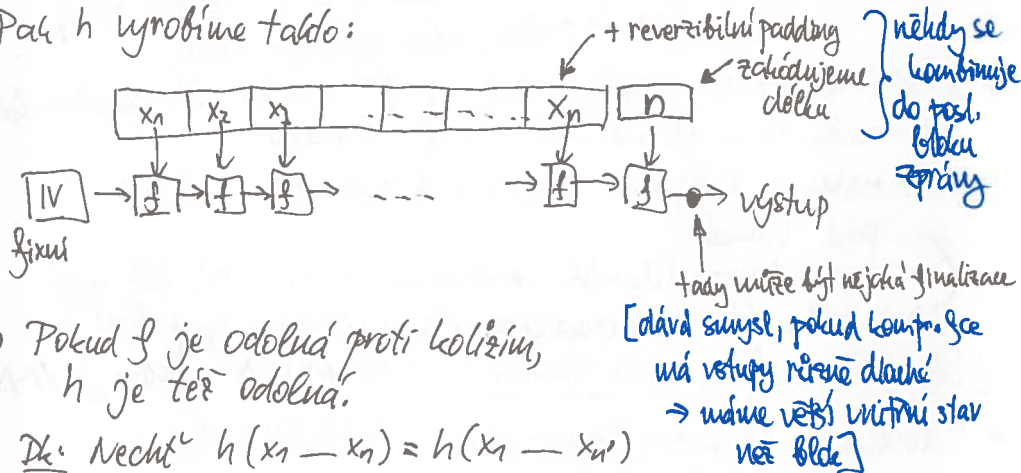 Pak h vyrobíme takto:
+ reverzibilní padding
zakódujeme
délku
někdy se
kombinuje
do posl.
bloku
zprávy
x1 x2 x3 - - - - - - xn n
IV → f → f → f → - - - → f → f → výstup
fixní
tady může být nějaká finalizace
[dává smysl, pokud kompr. fce
má vstupy různě dlouhé
→ máme větší vnitřní stav
než blok]
Pokud f je odolná proti kolizím,
h je též odolná.
Dk: Nechť h(x1 — xn) = h(x1 — xn')